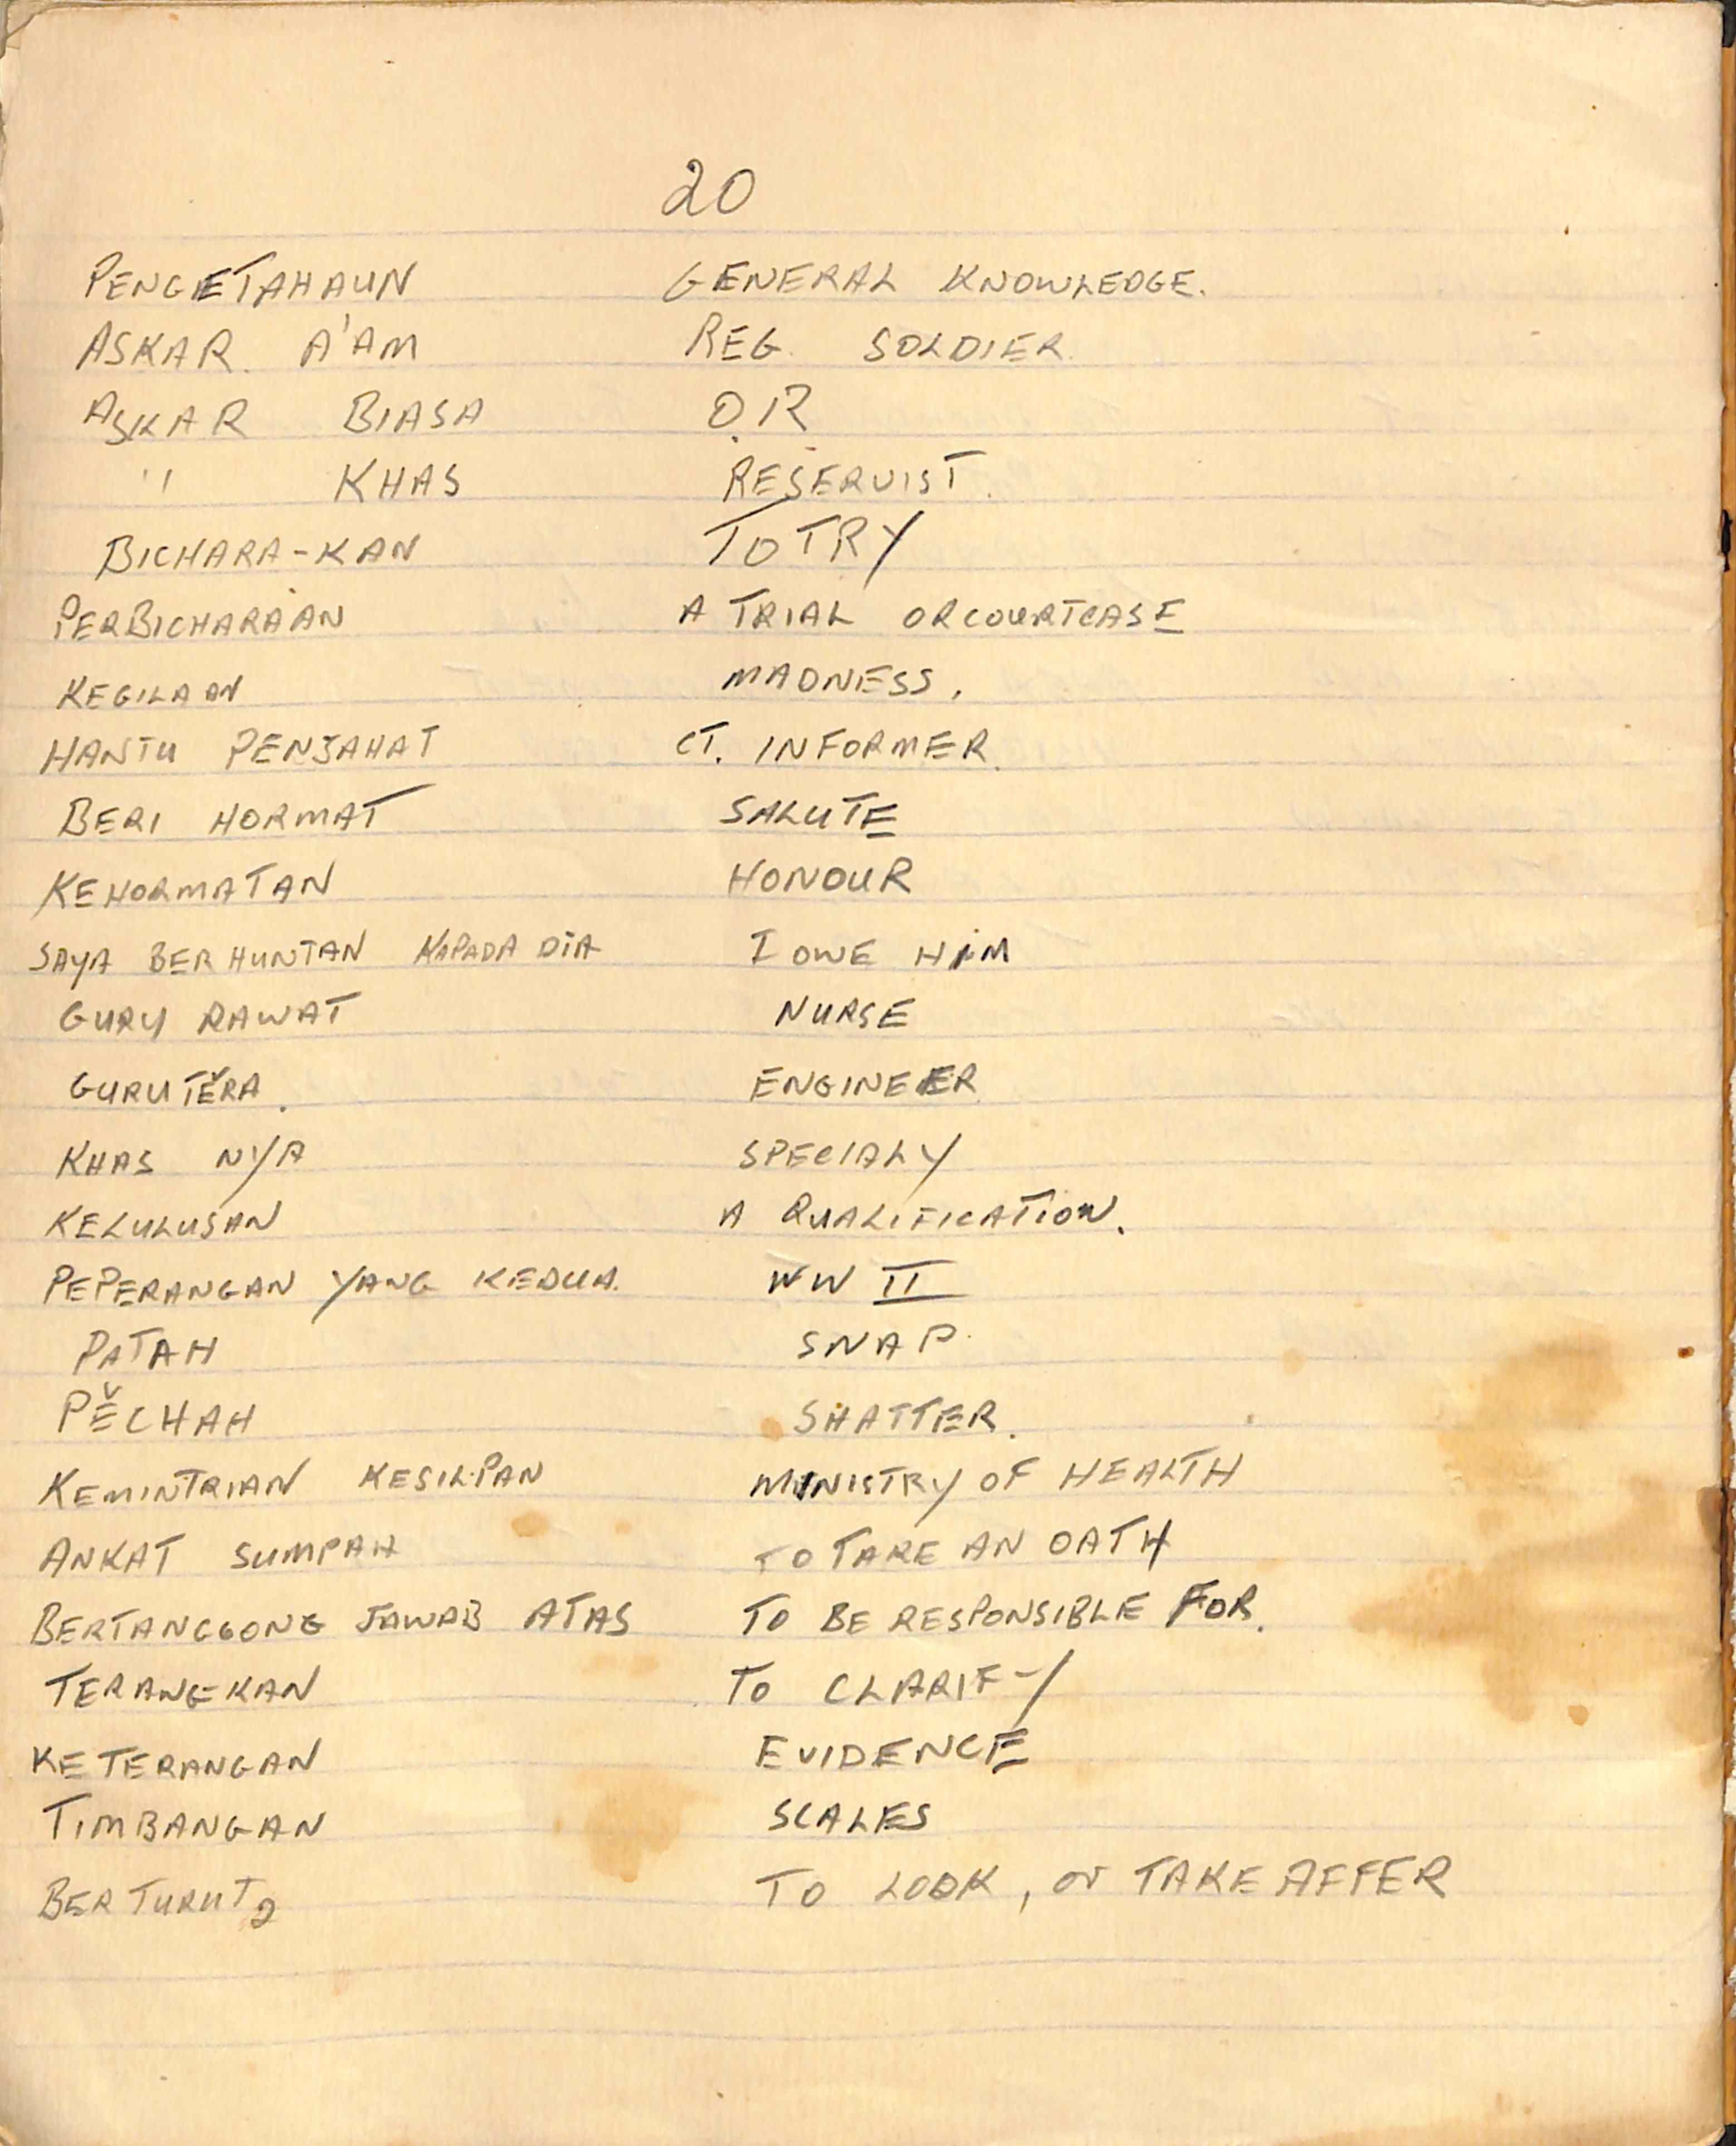 20
PENGETAHAUN GENERAL KNOWLEDGE.
ASKAR. A'AM REG. SOLDIER.
ASKAR BIASA O.R
" KHAS RESERVIST.
BICHARA-KAN TO TRY
PERBICHARA'AN A TRIAL OR COURTCASE
KEGILAAN MADNESS.
HANTU PENJAHAT CT. INFORMER.
BERI HORMAT SALUTE
KEHORMATAN HONOUR
SAYA BERHUNTAN KAPADA DIA I OWE HIM
GURU RAWAT NURSE
GURU TĔRA. ENGINEER
KHAS NYA SPECIALY
KELULUSAN A QUALIFICATION.
PEPERANGAN YANG KEDUA. WW II
PATAH SNAP.
PĔCHAH SHATTER.
KEMINTRIAN KESILPAN MINISTRY OF HEALTH
ANKAT SUMPAH TO TAKE AN OATH
BERTANGGONG JAWAB ATAS TO BE RESPONSIBLE FOR.
TERANGKAN TO CLARIFY
KETERANGAN EVIDENCE
TIMBANGAN SCALES
BERTURUT2 TO LOOK, or TAKE AFFER